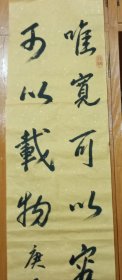 唯寬可以容
可以載物庚